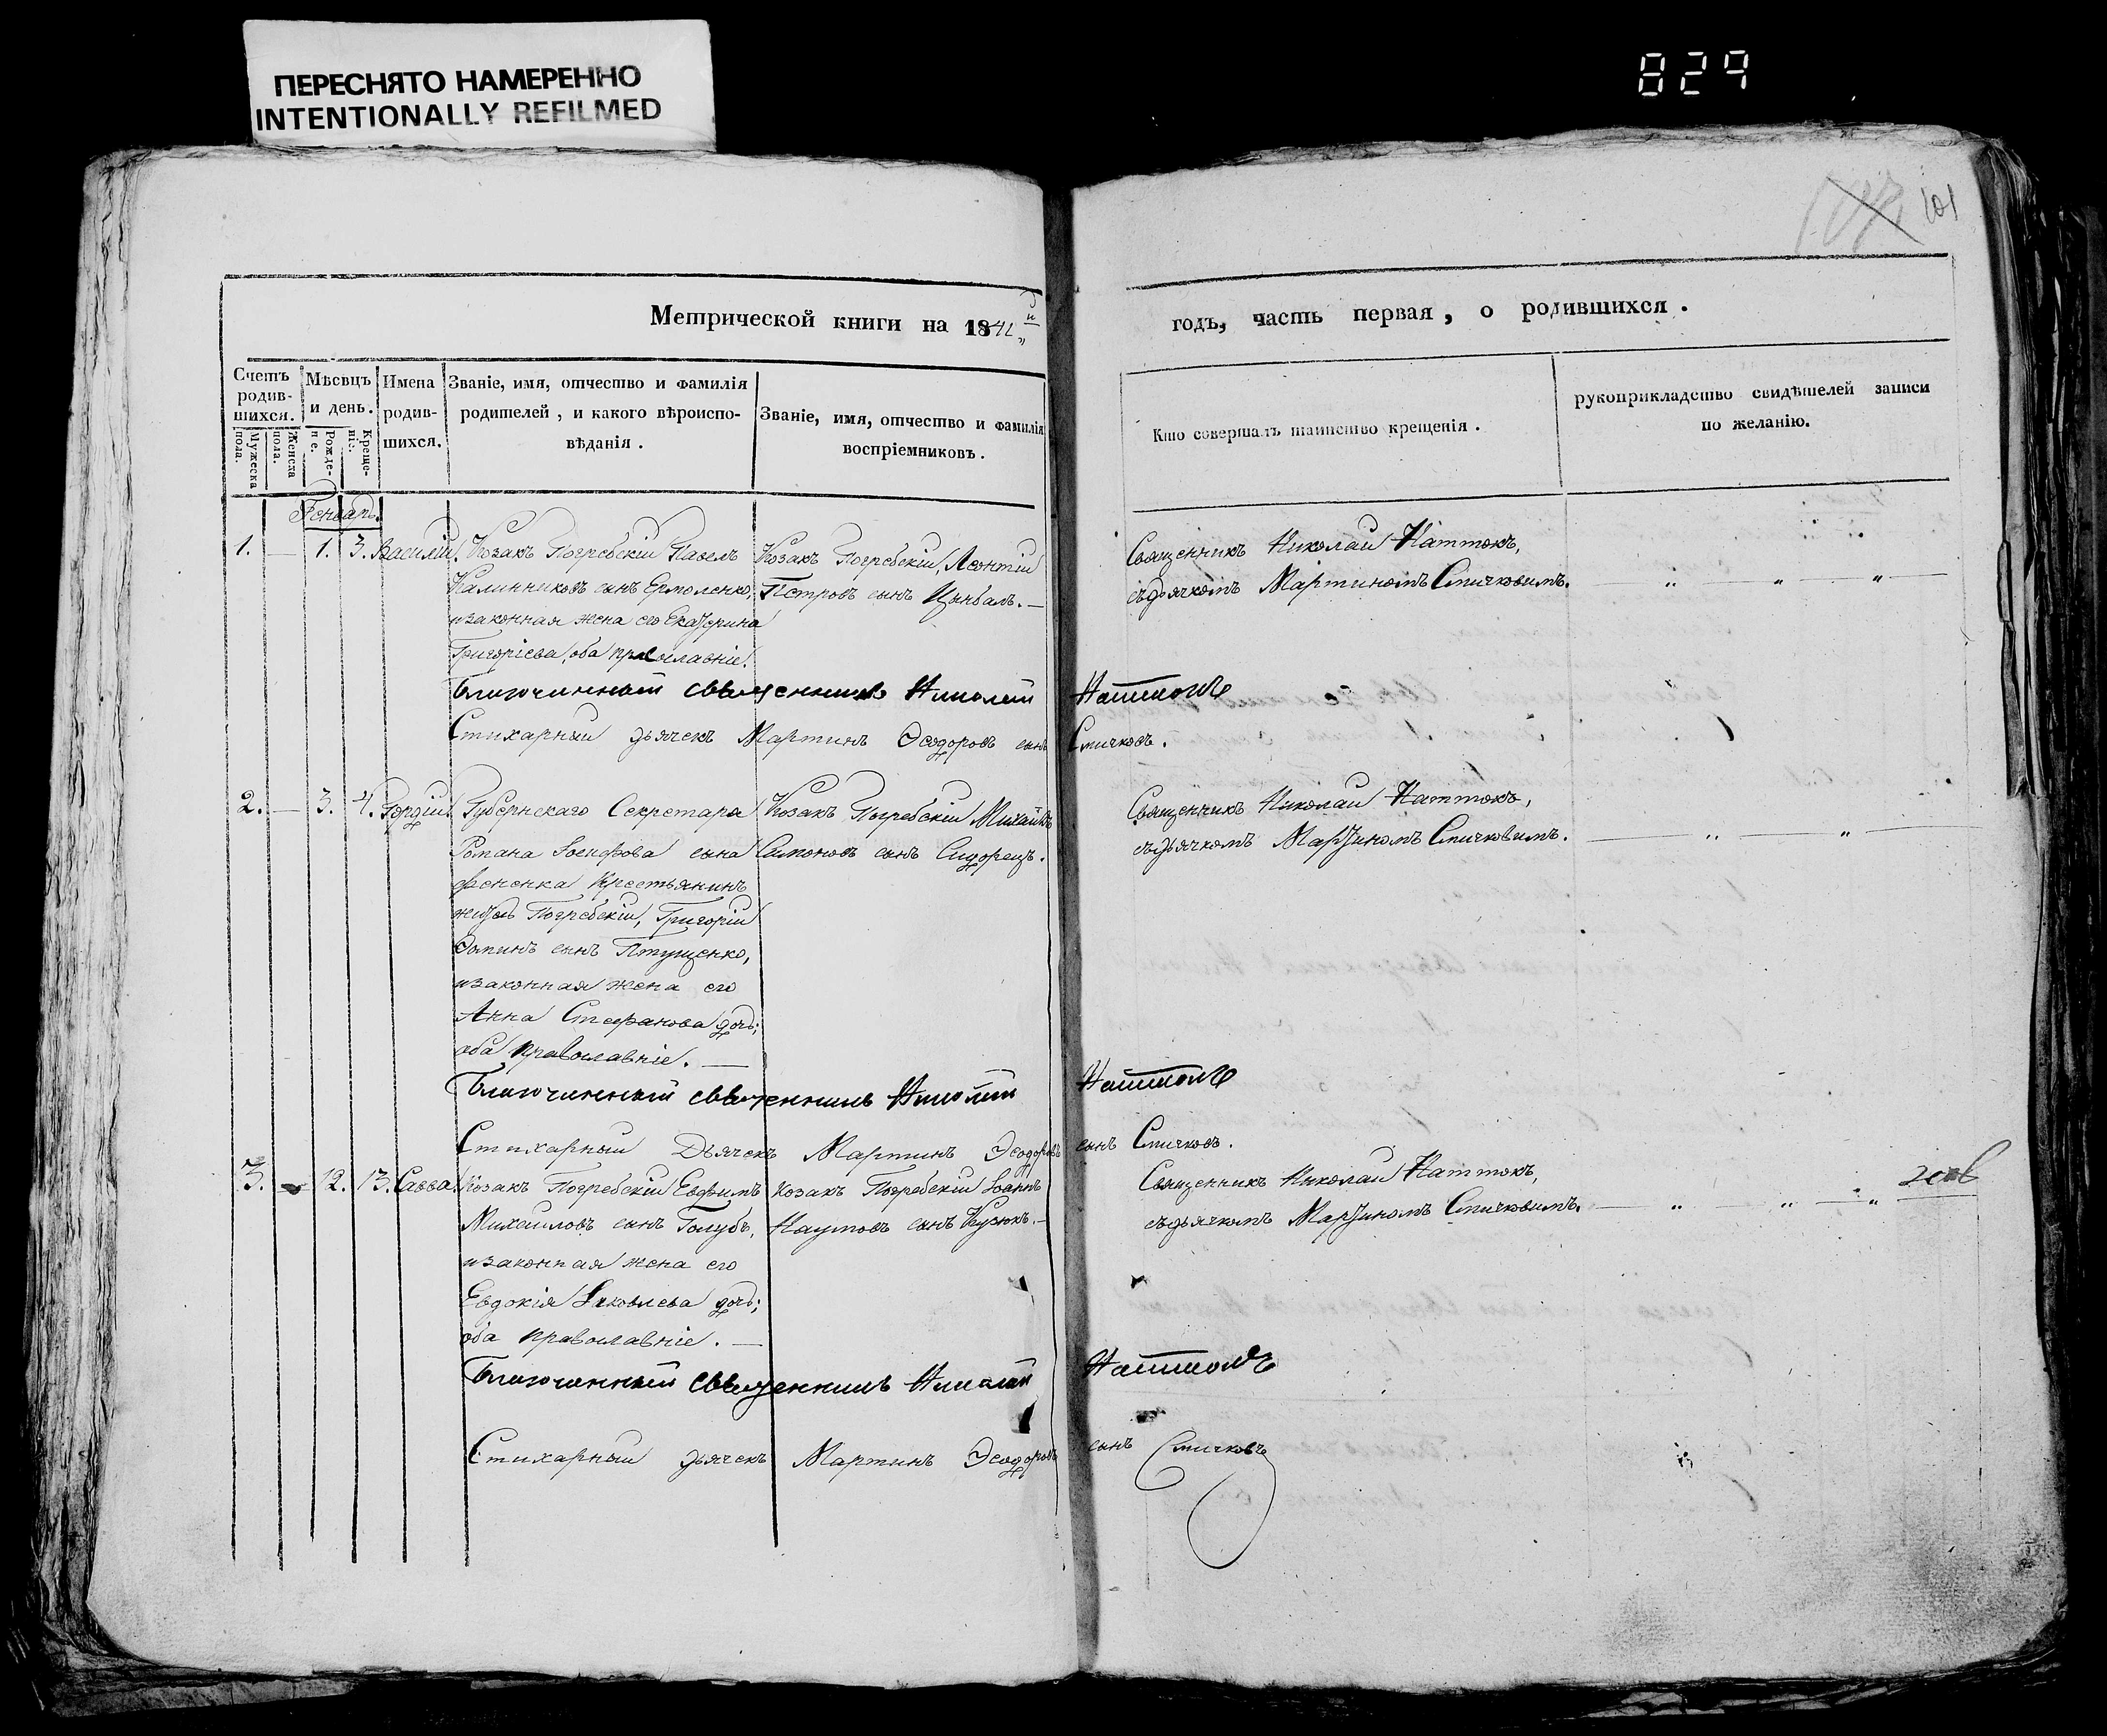 ПЕРЕСНЯТО НАМЕРЕННО
INTENTIONALLY REFILMED
829
101
Метрической книги на 1842й
годъ, часть первая, о родившихся.
Счетъ родив-шихся.
Мужеска пола.
Женска пола.
Мѣсяцъ и день.
Рожде-ніе.
Креще-ніе.
Имена родив-шихся.
Званіе, имя, отчество и фамилія
родителей, и какого вѣроиспо-
вѣданія.
Званіе, имя, отчество и фамилія
воспріемниковъ.
Кто совершалъ таинство крещенія.
рукоприкладство свидѣтелей записи
по желанію.
Генварь.
1. — 1. 3. Василій. Козакъ Погребскій Павелъ Козакъ Погребскій, Леонтій Священникъ Николай Наттокъ,
Калинниковъ сынъ Ермоленко, Петровъ сынъ Цымбалъ. — съдьячкомъ Мартиномъ Спичковимъ.
изаконная жена его Екатерина
Григоріева, оба православніе.
Благочинный священникъ Николай Наттокъ
Стихарный дьячекъ Мартинъ Ѳеодоровъ сынъ Спичковъ.
2. — 3. 4. Гордій. Губернскаго Секретаря Козакъ Погребскій Михайлъ Священникъ Николай Наттокъ,
Романа Іосифова сына Самоновъ сынъ Сидорецъ. съдьячкомъ Мартиномъ Спичковимъ.
Крестьянинъ
житель Погребскій, Григорій
Ѳоминъ сынъ Птущенко,
изаконная жена его
Анна Стефанова дочь;
оба православніе. —
Благочинный священникъ Николай Наттокъ
Стихарный Дьячекъ Мартинъ Ѳеодоровъ сынъ Спичковъ.
3. — 12. 13. Савва. Козакъ Погребскій Евфимъ Козакъ Погребскій Іоаннъ Священникъ Николай Наттокъ,
Михайловъ сынъ Голубъ, Наумовъ сынъ Кузюкъ. — съдьячкомъ Мартиномъ Спичковимъ.
изаконная жена его
Евдокія Іаковлева дочь;
оба православніе. —
Благочинный священникъ Николай Наттокъ
Стихарный дьячекъ Мартинъ Ѳеодоровъ сынъ Спичковъ